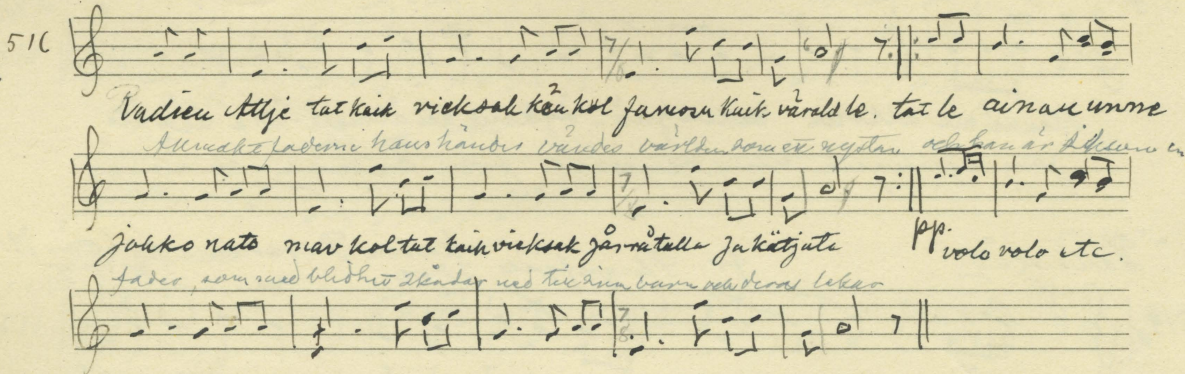 516
Radien Attje tat kaik vieksak käüköl famosn kaik väraldle. tat le ainau unne
faderns hans händer vändes världen som ett nystan och han är
jokko nato mav kol tat kaik vieksak jås råtalla ja kätjata
pp. volo volo etc.
fader, som med blidhet skådar ned till sina barn och deras lekar